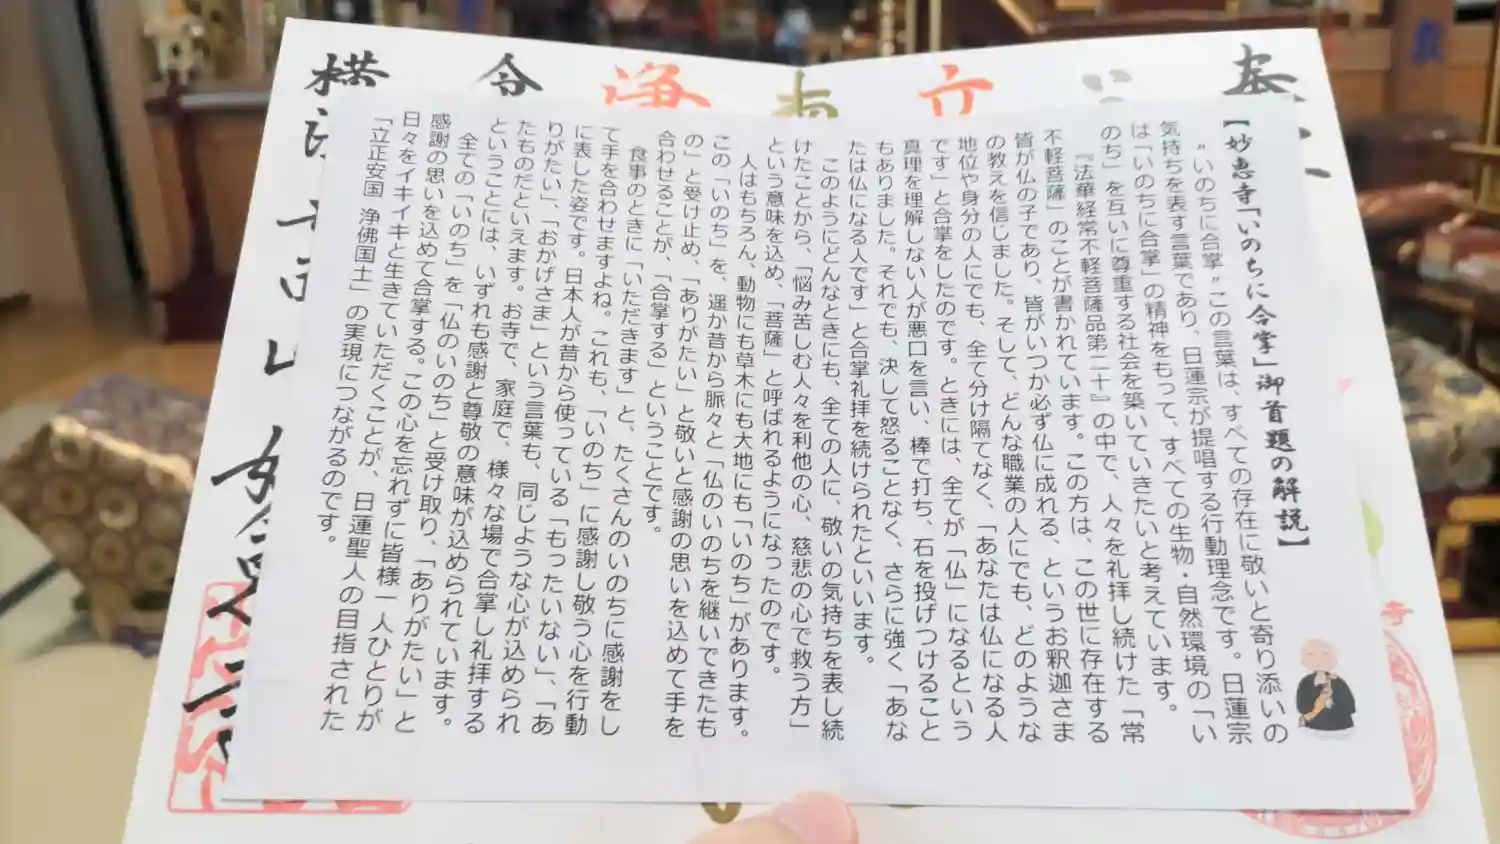 【妙恵寺「いのちに合掌」御首題の解説】
“いのちに合掌”この言葉は、すべての存在に敬いと寄り添いの
気持ちを表す言葉であり、日蓮宗が提唱する行動理念です。日蓮宗
は「いのちに合掌」の精神をもって、すべての生物・自然環境の「い
のち」を互いに尊重する社会を築いていきたいと考えています。
『法華経常不軽菩薩品第二十』の中で、人々を礼拝し続けた「常
不軽菩薩」のことが書かれています。この方は、この世に存在する
皆が仏の子であり、皆がいつか必ず仏に成れる、というお釈迦さま
の教えを信じました。そして、どんな職業の人にでも、どのような
地位や身分の人にでも、全て分け隔てなく、「あなたは仏になる人
です」と合掌をしたのです。ときには、全てが「仏」になるという
真理を理解しない人が悪口を言い、棒で打ち、石を投げつけること
もありました。それでも、決して怒ることなく、さらに強く「あな
たは仏になる人です」と合掌礼拝を続けられたといいます。
このようにどんなときにも、全ての人に、敬いの気持ちを表し続
けたことから、「悩み苦しむ人々を利他の心、慈悲の心で救う方」
という意味を込め、「菩薩」と呼ばれるようになったのです。
人はもちろん、動物にも草木にも大地にも「いのち」があります。
この「いのち」を、遥か昔から脈々と「仏のいのちを継いできたも
の」と受け止め、「ありがたい」と敬いと感謝の思いを込めて手を
合わせることが、「合掌する」ということです。
食事のときに「いただきます」と、たくさんのいのちに感謝をし
て手を合わせますよね。これも、「いのち」に感謝し敬う心を行動
に表した姿です。日本人が昔から使っている「もったいない」、「あ
りがたい」、「おかげさま」という言葉も、同じような心が込められ
たものだといえます。お寺で、家庭で、様々な場で合掌し礼拝する
ということには、いずれも感謝と尊敬の意味が込められています。
全ての「いのち」を「仏のいのち」と受け取り、「ありがたい」と
感謝の思いを込めて合掌する。この心を忘れずに皆様一人ひとりが
日々をイキイキと生きていただくことが、日蓮聖人の目指された
「立正安国　浄佛国土」の実現につながるのです。
立
浄
寺